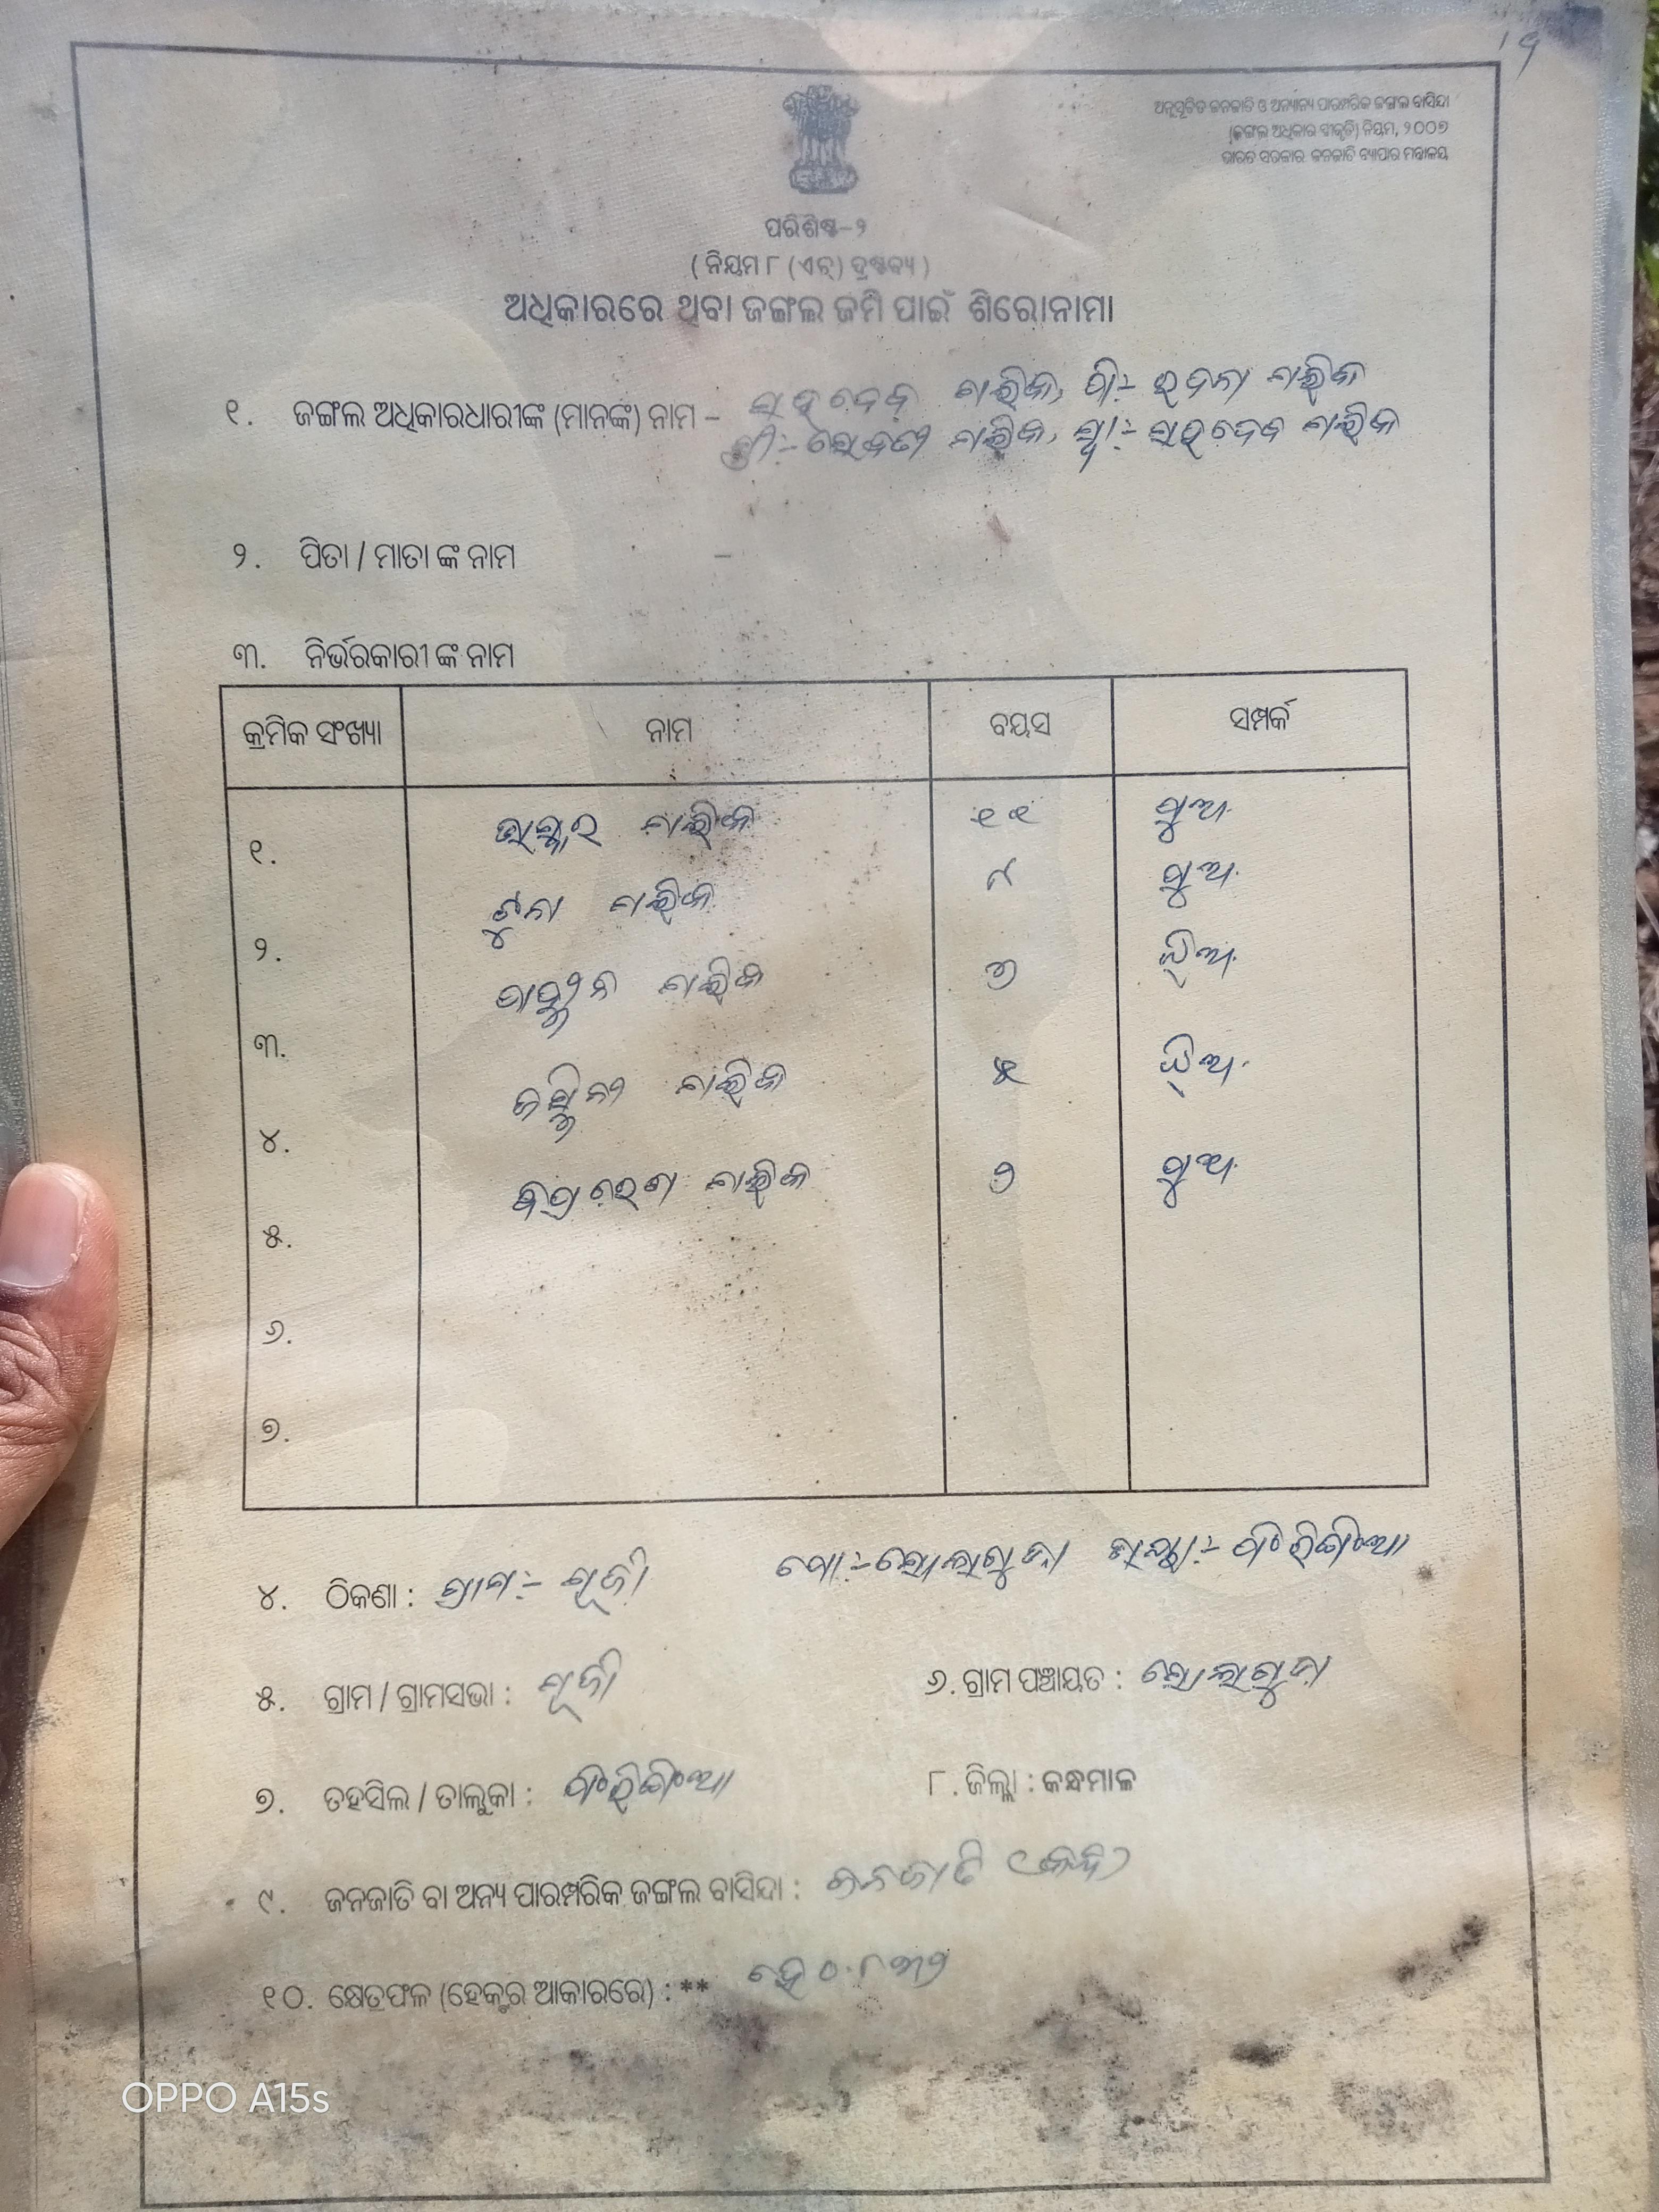 ଅନୁସୂଚିତ ଜନଜାତି ଓ ଅନ୍ୟାନ୍ୟ ପାରମ୍ପରିକ ଜଙ୍ଗଲ ବାସିନ୍ଦା
(ଜଙ୍ଗଲ ଅଧିକାର ସ୍ୱୀକୃତି) ନିୟମ, ୨୦୦୭
ଭାରତ ସରକାର ଜନଜାତି ବ୍ୟାପାର ମନ୍ତ୍ରାଳୟ
ପରିଶିଷ୍ଟ-୨
( ନିୟମ ୮ (ଏଚ୍) ଦ୍ରଷ୍ଟବ୍ୟ )
ଅଧିକାରରେ ଥିବା ଜଙ୍ଗଲ ଜମି ପାଇଁ ଶିରୋନାମା
୧. ଜଙ୍ଗଲ ଅଧିକାରଧାରୀଙ୍କ (ମାନଙ୍କ) ନାମ – ସହଦେବ ମଲିକ, ପି:-  ମଲିକ
ସ୍ତ୍ରୀ:-  ମଲିକ, ସ୍ୱା:- ସହଦେବ ମଲିକ
୨. ପିତା / ମାତା ଙ୍କ ନାମ –
୩. ନିର୍ଭରକାରୀ ଙ୍କ ନାମ
କ୍ରମିକ ସଂଖ୍ୟା ନାମ ବୟସ ସମ୍ପର୍କ
୧. ଭାସ୍କର ମଲିକ ୧୧ ପୁଅ
୨. ଟୁନା ମଲିକ ୯ ପୁଅ
୩. ମଲିକ ଝିଅ
୪. ମଲିକ ୫ ଝିଅ
୫. ମଲିକ ୨ ପୁଅ
୬.
୭.
୪. ଠିକଣା : ଗ୍ରାମ:- ପୋ:-
୫. ଗ୍ରାମ / ଗ୍ରାମସଭା :
୬. ଗ୍ରାମ ପଞ୍ଚାୟତ :
୭. ତହସିଲ / ତାଲୁକା :
୮. ଜିଲ୍ଲା : କନ୍ଧମାଳ
୯. ଜନଜାତି ବା ଅନ୍ୟ ପାରମ୍ପରିକ ଜଙ୍ଗଲ ବାସିନ୍ଦା : ଜନଜାତି (କନ୍ଧ)
୧୦. କ୍ଷେତ୍ରଫଳ (ହେକ୍ଟର ଆକାରରେ) : ** ହେ ୦.୮୩୨
OPPO A15s